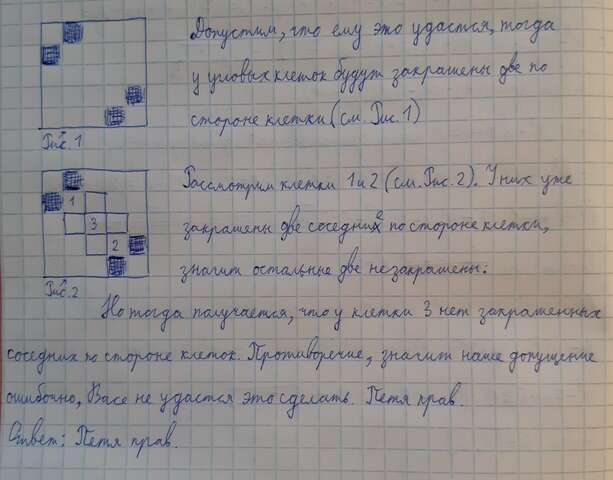 Допустим, что ему это удастся, тогда
у угловых клеток будут закрашены две по
стороне клетки (см. Рис. 1)
Рис. 1
Рассмотрим клетки 1 и 2 (см. Рис. 2). У них уже
закрашены две соседние по стороне клетки,
значит остальные две незакрашены.
1
3
2
Рис. 2
Но тогда получается, что у клетки 3 нет закрашенных
соседних по стороне клеток. Противоречие, значит наше допущение
ошибочно, Васе не удастся это сделать. Петя прав.
Ответ: Петя прав.